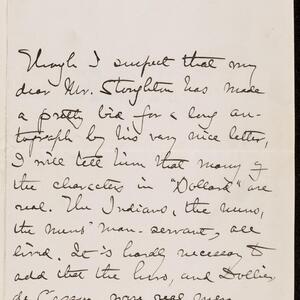 Though I suspect that my
dear Mr. Stoughton has made
a pretty bid for a long au-
tograph by his very nice letter,
I will tell him that many of
the characters in "Dollard" are
real. The Indians, the nuns,
the nuns' man-servant, all
lived. It is hardly necessary to
add that the hero, and Dollier
de Casson, were real men